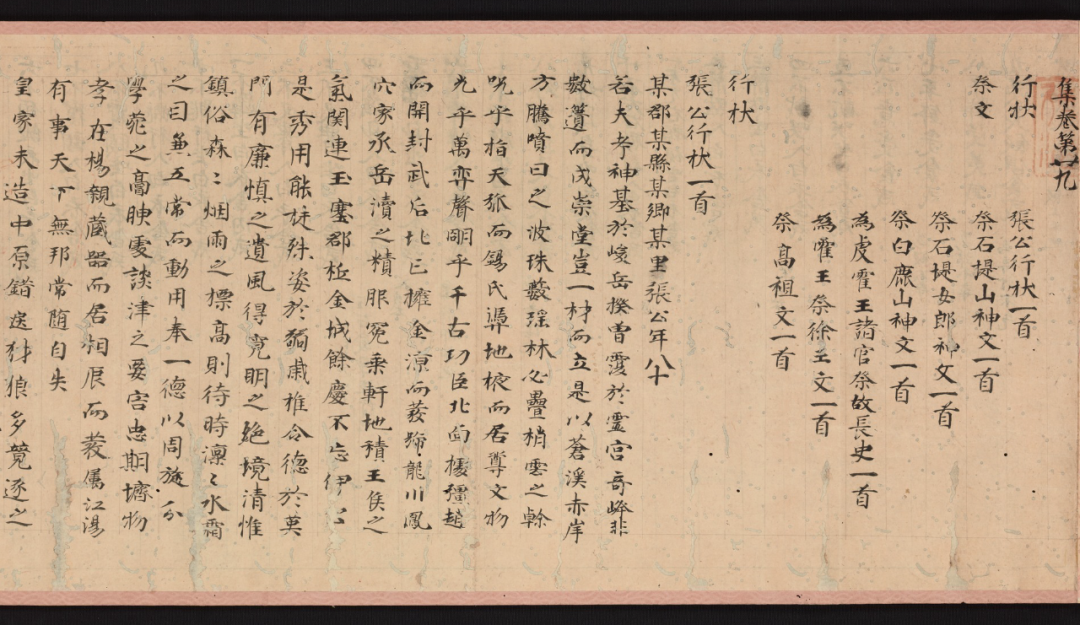 集卷第廿九
行狀
張公行狀一首
祭文
祭石堤山神文一首
祭石堤女郎神文一首
祭白鹿山神文一首
為虔霍王諸官祭故長史一首
為霍王祭徐王文一首
祭高祖文一首
行狀
張公行狀一首
某郡某縣某鄉某里張公年八十
若夫考神基於峻岳揆曾霊於霊宮奇峰非
數簣而成崇堂豈一材而立是以蒼溪赤岸
方騰噴日之波珠藪瑶林必疊梢雲之幹
況乎指天弧而錫氏辯地掖而居尊文物
光乎萬弈聲明乎千古功臣北面擾彊趙
而開封武后北巳擁金涼而發蹄龍川鳳
穴家承岳瀆之精服冕乗軒地積王侯之
氣関連玉塞郡枕金城餘慶不忘伊公
是秀用能挺殊姿於弱歲惟令德於莫
門有廉慎之遺風得寛明之絶境清惟
鎮俗森〻烟雨之標高則待時凛〻水霜
之曰兼五常而動用奉一德以周旋公
學苑之膏腴處談津之要害忠期壔物
孝在楊親藏器而居相辰而發属江湯
有事天下無邦常随自失
皇家未造中原錯迕豺狼多競逐之